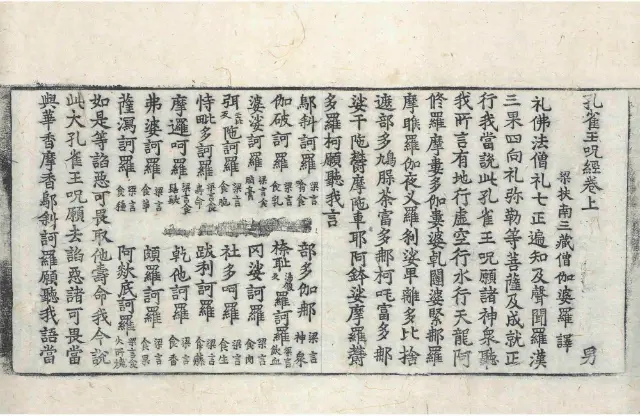 孔雀王呪經卷上
梁扶南三藏僧伽婆羅譯 男
礼佛法僧礼七正遍知及聲聞羅漢
三果四向礼弥勒等菩薩及成就正
行我當說此孔雀王呪願諸神衆聽
我所言有地行虛空行水行天龍阿
修羅摩婁多伽婁婆乹闥婆緊那羅
摩睺羅伽夜叉羅刹娑畢離多比捨
遮部多鳩脲茶富多那柯吒富多那
娑千陁欝摩陁車耶阿鉢娑摩羅欝
多羅柯願聽我言
鄔斜訶羅 梁言食 部多伽那 梁言神衆
伽破訶羅 梁言食 㮈耻羅訶羅 梁言飲血
婆娑訶羅 梁言食 罔娑訶羅 梁言食肉
弭陁訶羅 梁言食脂 社多呵羅 梁言食生
恃毗多訶羅 梁言食命 跋利訶羅 梁言食
摩邏呵羅 梁言食 乹他訶羅 梁言食香
弗婆訶羅 梁言食華 頗羅訶羅 梁言食果
薩瀉訶羅 梁言食種 阿燚底訶羅 梁言食火所燒
如是等諂惡可畏取他壽命我今說
此大孔雀王呪願去諂惡諸可畏當
與華香摩香鄔斜訶羅願聽我語當